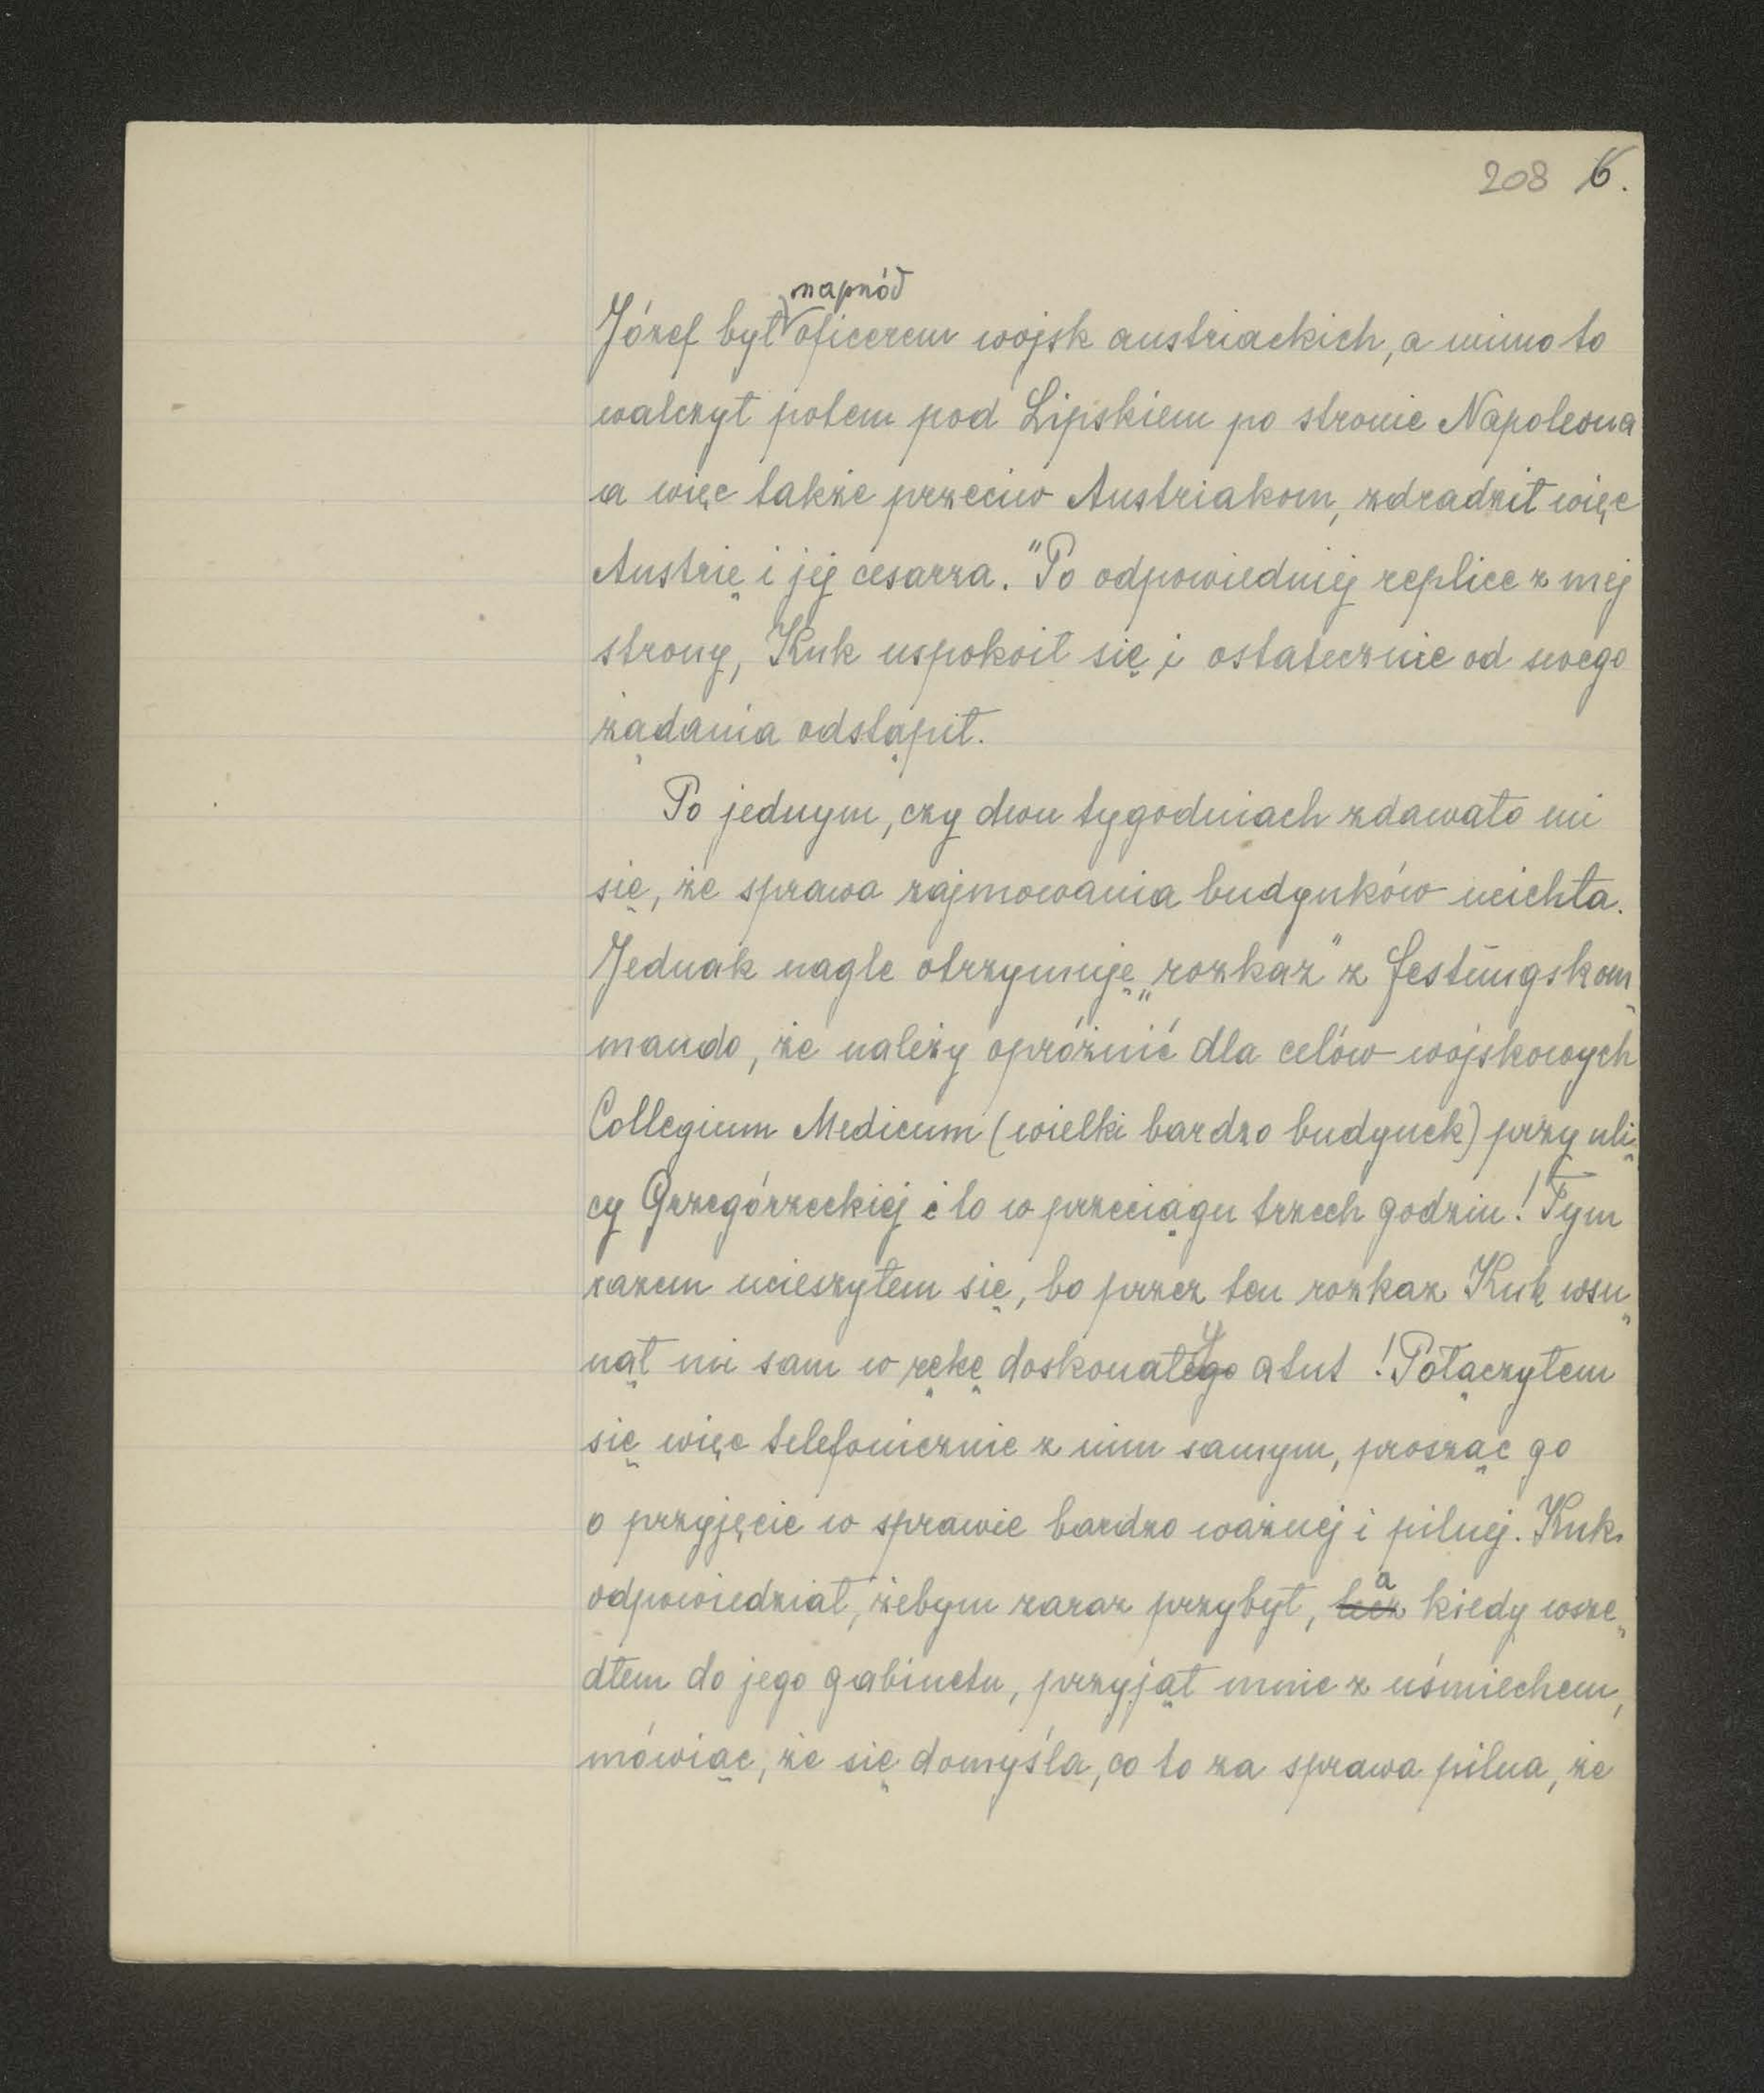 208 6.
napród
Józef był oficerem wojsk austriackich, a mimo to
walczył potem pod Lipskiem po stronie Napoleona
a więc także przeciw Austriakom, zdradził więc
Austrię i jej cesarza." Po odpowiedniej replice z mej
strony, Kuk uspokoił się i ostatecznie od swego
żądania odstąpił.
Po jednym, czy dwu tygodniach zdawało mi
się, że sprawa zajmowania budynków ucichła.
Jednak nagle otrzymuję „rozkaz" z Festungskom„
mando, że należy opróżnić dla celów wojskowych
Collegium Medicum (wielki bardzo budynek) przy uli„
cy Grzegórzeckiej i to w przeciągu trzech godzin! Tym
razem ucieszyłem się, bo przez ten rozkaz Kuk wsu„
y
nął mi sam w rękę doskonałego atut! Połączyłem
się więc telefonicznie z nim samym, prosząc go
o przyjęcie w sprawie bardzo ważnej i pilnej. Kuk
a
odpowiedział, żebym zaraz przybył, lecz kiedy wsze„
dłem do jego gabinetu, przyjął mnie z uśmiechem,
mówiąc, że się domyśla, co to za sprawa pilna, że